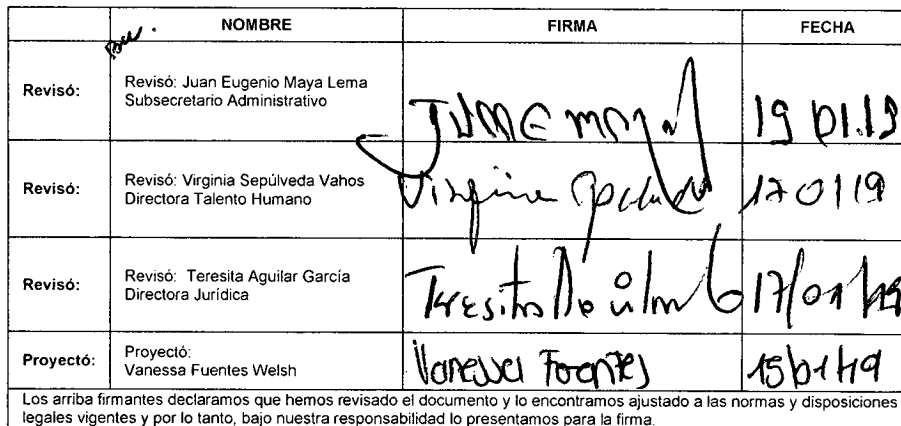 NOMBRE FIRMA FECHA
Revisó: Revisó: Juan Eugenio Maya Lema
Subsecretario Administrativo
19 01.19
Revisó: Revisó: Virginia Sepúlveda Vahos
Directora Talento Humano
Virginia 17 01 19
Revisó: Revisó: Teresita Aguilar García
Directora Jurídica
Teresita Aguilar G 17/01/19
Proyectó: Proyectó:
Vanessa Fuentes Welsh
Vanessa Fuentes 15/01/19
Los arriba firmantes declaramos que hemos revisado el documento y lo encontramos ajustado a las normas y disposiciones
legales vigentes y por lo tanto, bajo nuestra responsabilidad lo presentamos para la firma.